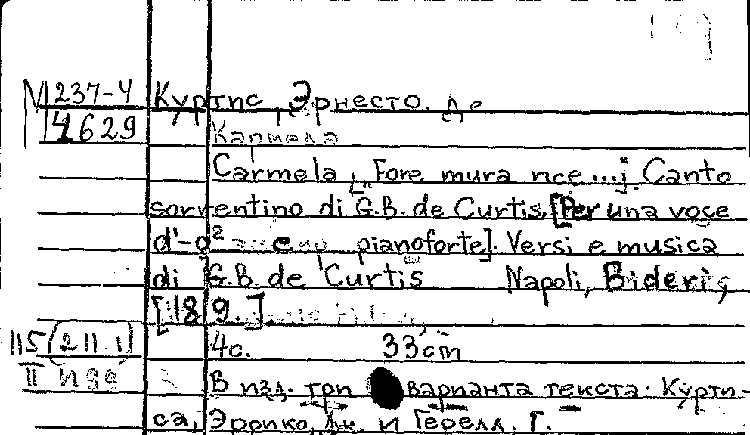 М 237-4 Куртис, Эрнесто. де
4629 Кармела
Carmela ["Fore mura nce...]. Canto
sorrentino di G.B. de Curtis. [Per una voce
d'-g² pianoforte]. Versi e musica
di G.B. de Curtis Napoli, Bideri,
[189.]
115(211.1) 4с. 33cm
II В изд. три варианта текста. Курти-
са, Эррико, Дж. и Герелл, Г.